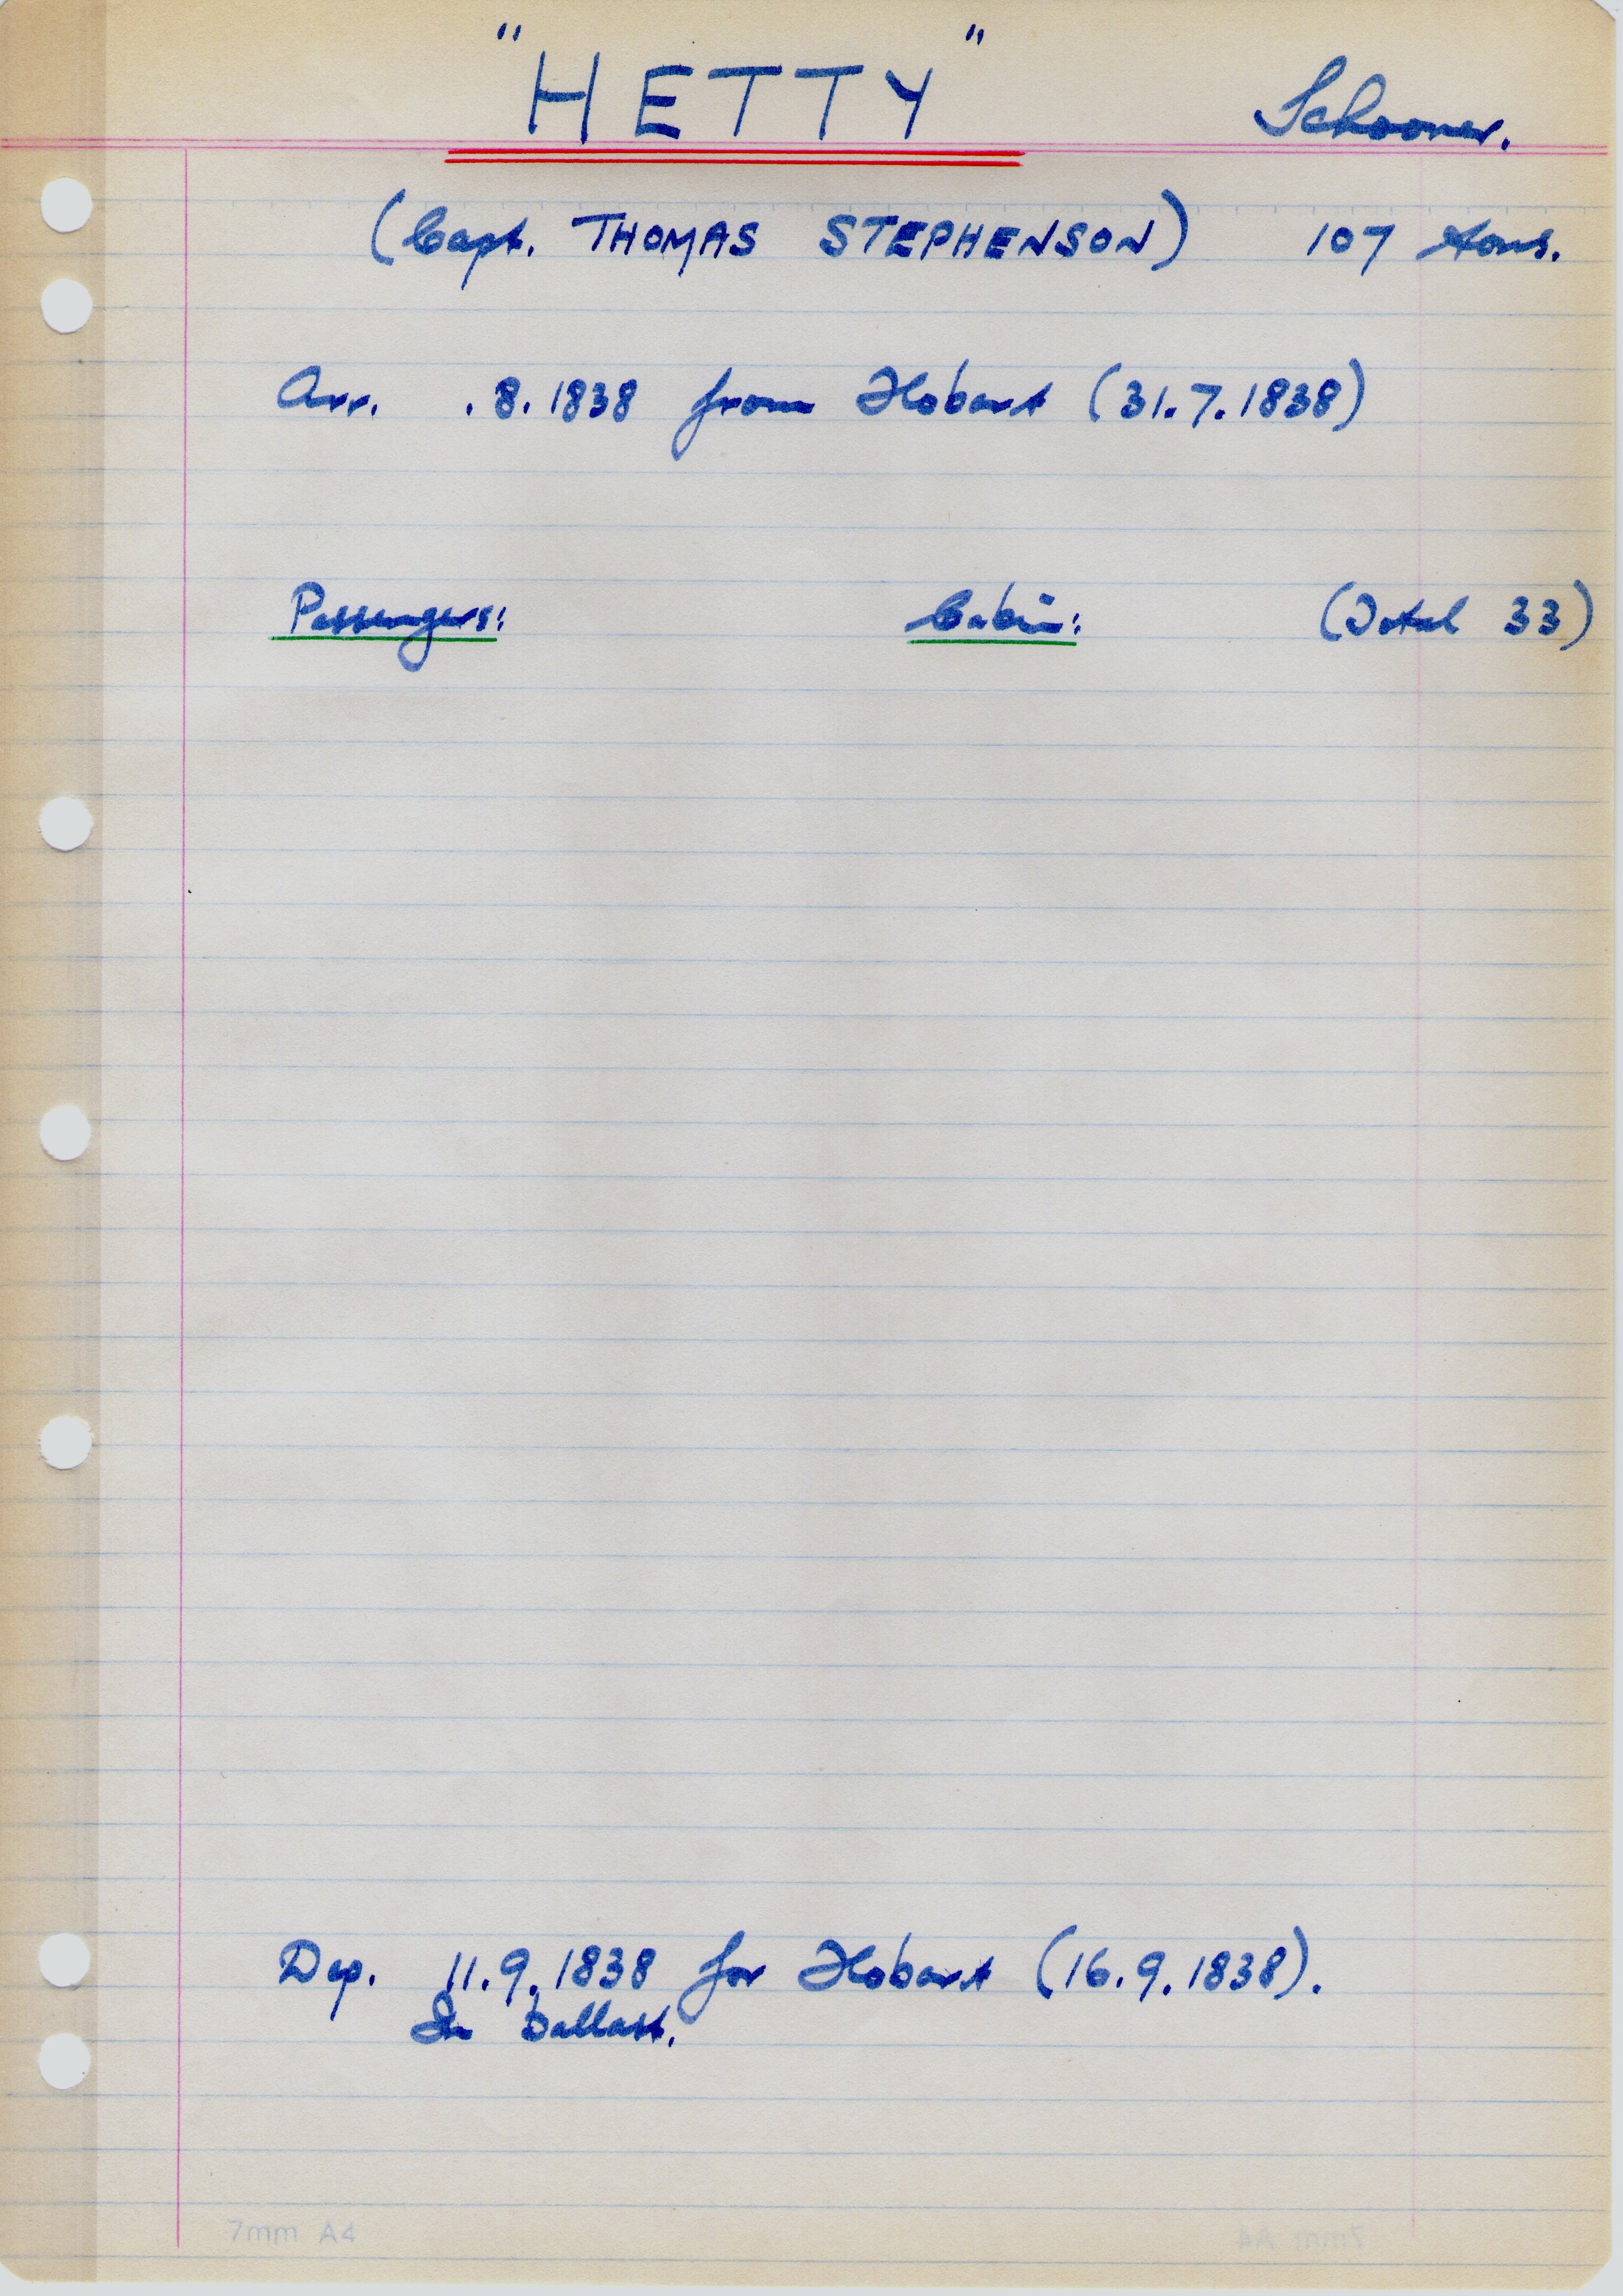 "HETTY" Schooner.
(Capt. THOMAS STEPHENSON) 107 tons.
Arr. .8.1838 from Hobart (31.7.1838)
Passengers: Cabin: (Total 33)
Dep. 11.9.1838 for Hobart (16.9.1838).
In ballast.
7mm A4
7mm A4